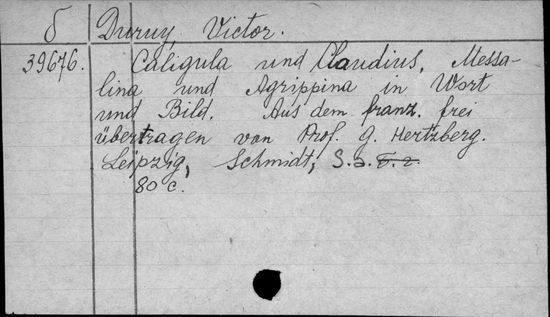 б Duruy, Victor.
39676. Caligula und Claudius, Messa-
lina und Agrippina in Wort
und Bild. Aus dem franz. frei
übertragen von Prof. G. Hertzberg.
Leipzig, Schmidt, S.a. б. г.
80 с.